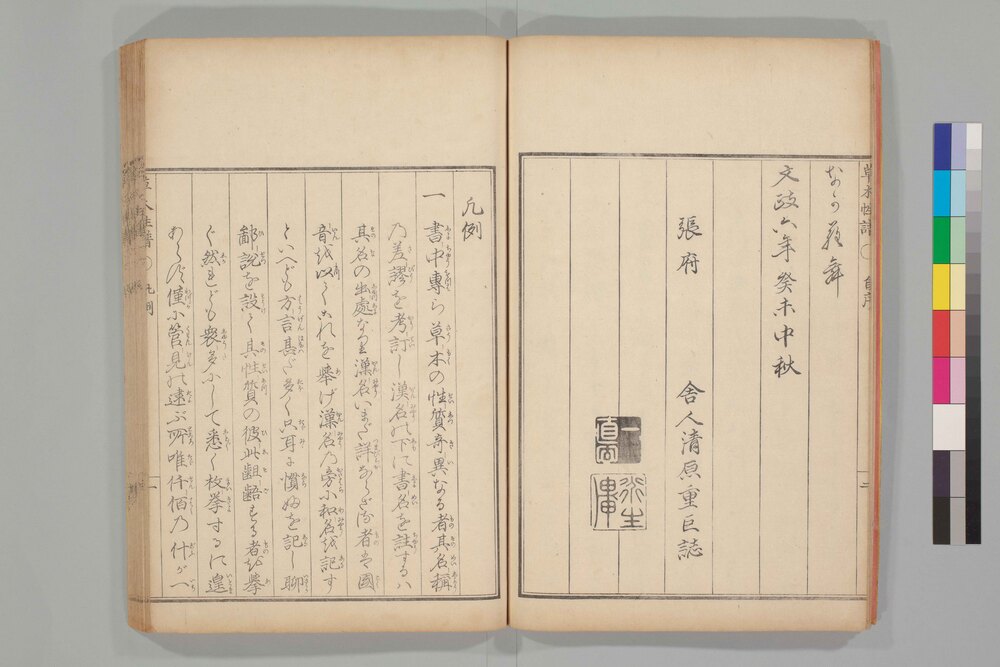 草木性譜 自序
文政六年癸未中秋
張府 舍人清原重巨誌
凡例
一 書中專ら草木の性質奇異なる者其名稱
乃差謬を考訂し漢名の下に書名を註するハ
其名の出處なり漢名いまだ詳ならざる者は國
音を以てこれを舉げ漢名乃旁小和名を記す
といへども方言甚だ多く只耳に慣ぬを記し聊
鄙說を設く其性質の彼此齟齬する者を擧
ぐ然れども衆多にして悉く枚擧するに遑
あらず僅小管見の逮ぶ所唯仟佰乃什が一
凡例